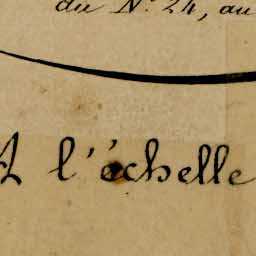 du N.° 24, au
A l'échelle